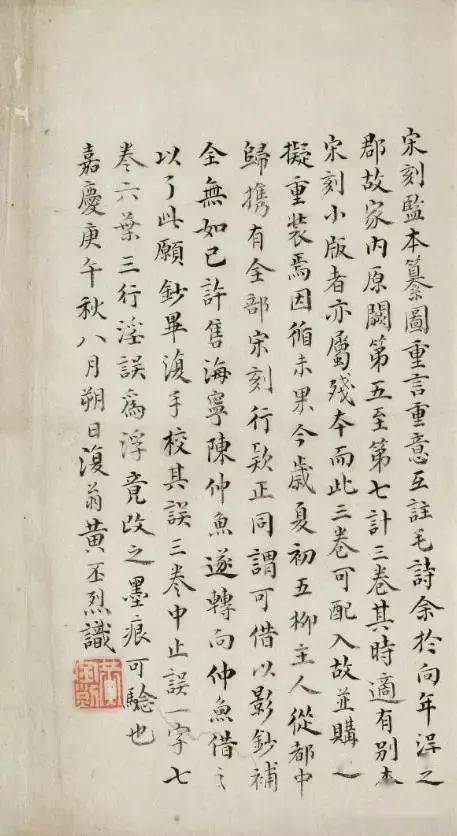 宋刻監本纂圖重言重意互註毛詩余於向年淂之
郡故家內原闕第五至第七計三卷其時適有別本
宋刻小版者亦屬殘本而此三卷可配入故並購之
擬重裝焉因循未果今歲夏初五柳主人從都中
歸攜有全部宋刻行款正同謂可借以影鈔補
全無如已許售海寧陳仲魚遂轉向仲魚借之
以了此願鈔畢復手校其誤三卷中止誤一字七
卷六葉三行淫誤為浮竟改之墨痕可驗也
嘉慶庚午秋八月朔日復翁黃丕烈識